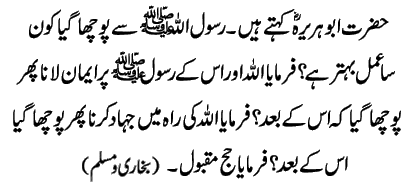 حضرت ابو ہریرہؓ کہتے ہیں۔ رسول اللہ ﷺ سے پوچھا گیا کون
سا عمل بہتر ہے؟ فرمایا اللہ اور اس کے رسول ﷺ پر ایمان لانا پھر
پوچھا گیا کہ اس کے بعد؟ فرمایا اللہ کی راہ میں جہاد کرنا پھر پوچھا گیا
اس کے بعد؟ فرمایا حج مقبول۔ (بخاری و مسلم)